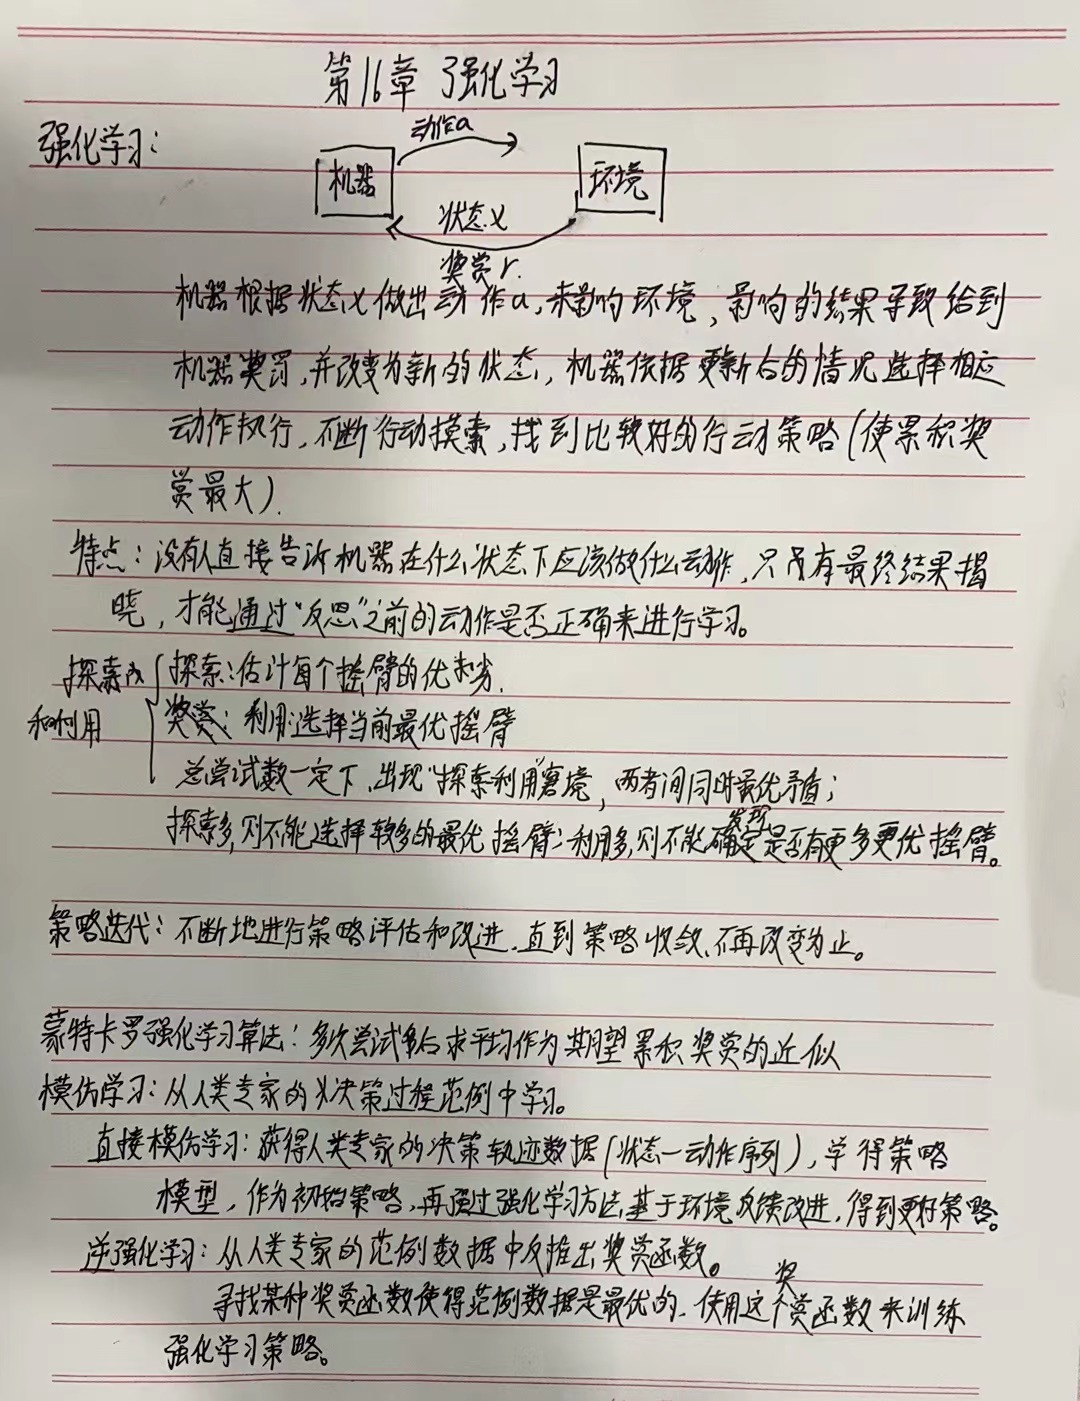 第16章 强化学习
强化学习：
动作a
机器
环境
状态x
奖赏r.
机器根据状态x做出动作a,来影响环境,影响的结果导致给到
机器奖罚,并改变为新的状态,机器依据更新后的情况选择相应
动作执行,不断行动摸索,找到比较好的行动策略(使累积奖
赏最大).
特点：没有人直接告诉机器在什么状态下应该做什么动作,只有最终结果揭
晓,才能通过“反思”之前的动作是否正确来进行学习。
探索
和利用
探索：估计每个摇臂的优劣.
利用：选择当前最优摇臂
总尝试数一定下,出现“探索利用”窘境,两者间同时最优矛盾;
探索多,则不能选择较多的最优摇臂;利用多,则不能发现是否有更多更优摇臂。
策略迭代：不断地进行策略评估和改进,直到策略收敛,不再改变为止。
蒙特卡罗强化学习算法：多次尝试后求平均作为期望累积奖赏的近似
模仿学习：从人类专家的决策过程范例中学习。
直接模仿学习：获得人类专家的决策轨迹数据(状态—动作序列),学得策略
模型,作为初始策略,再通过强化学习方法,基于环境反馈改进,得到更好策略。
逆强化学习：从人类专家的范例数据中反推出奖赏函数。
寻找某种奖赏函数使得范例数据是最优的,使用这个奖赏函数来训练
强化学习策略。